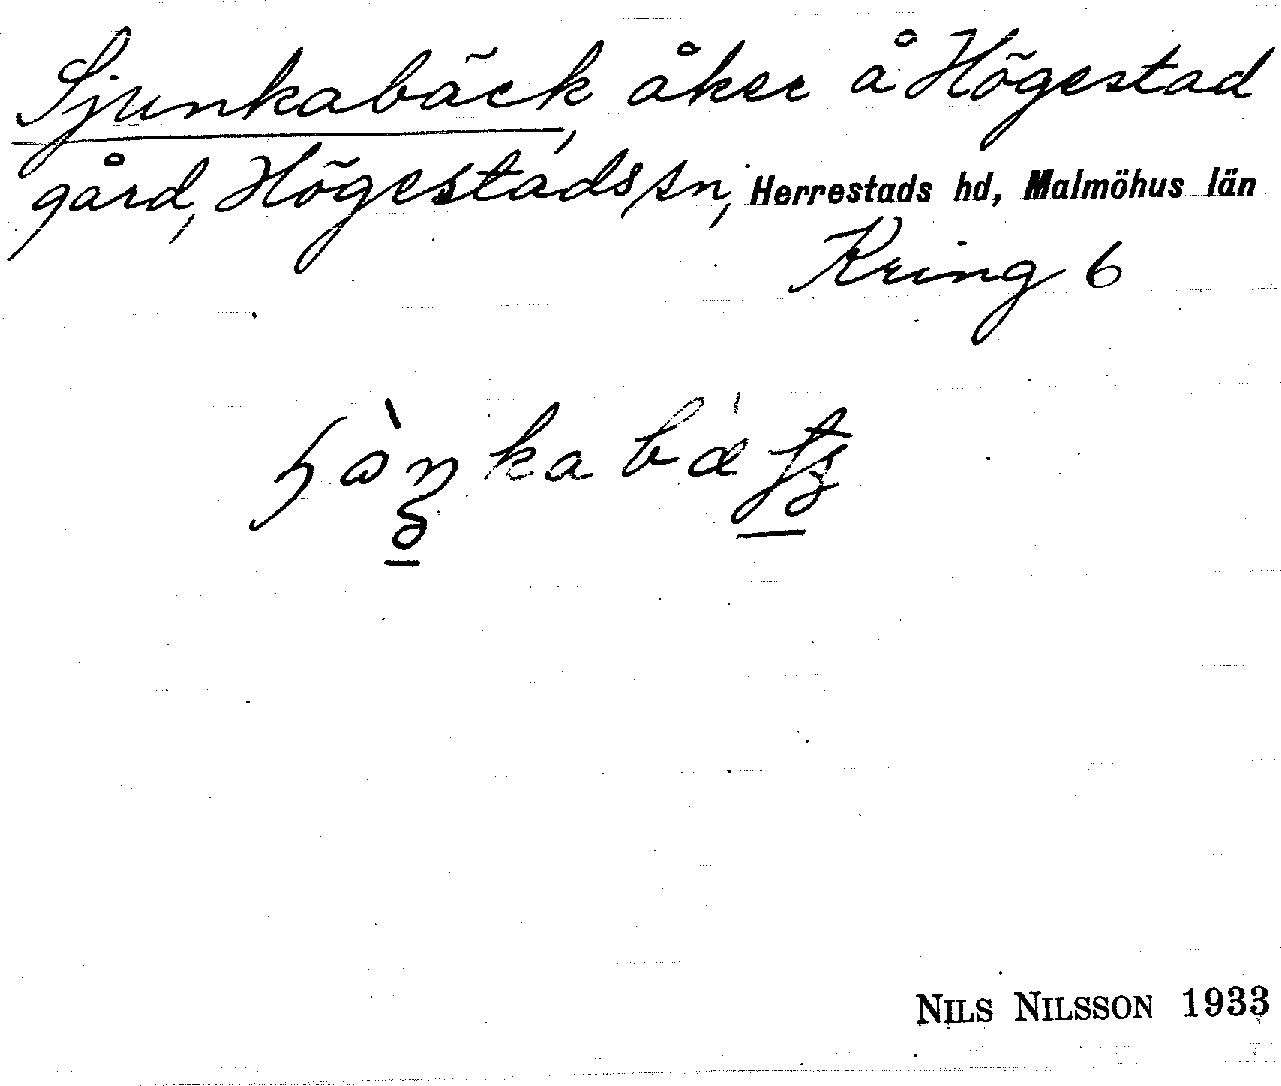 Sjunkabäck, åker å Högestad
gård, Högestads sn, Herrestads hd, Malmöhus län
Kring 6
NILS NILSSON 1933